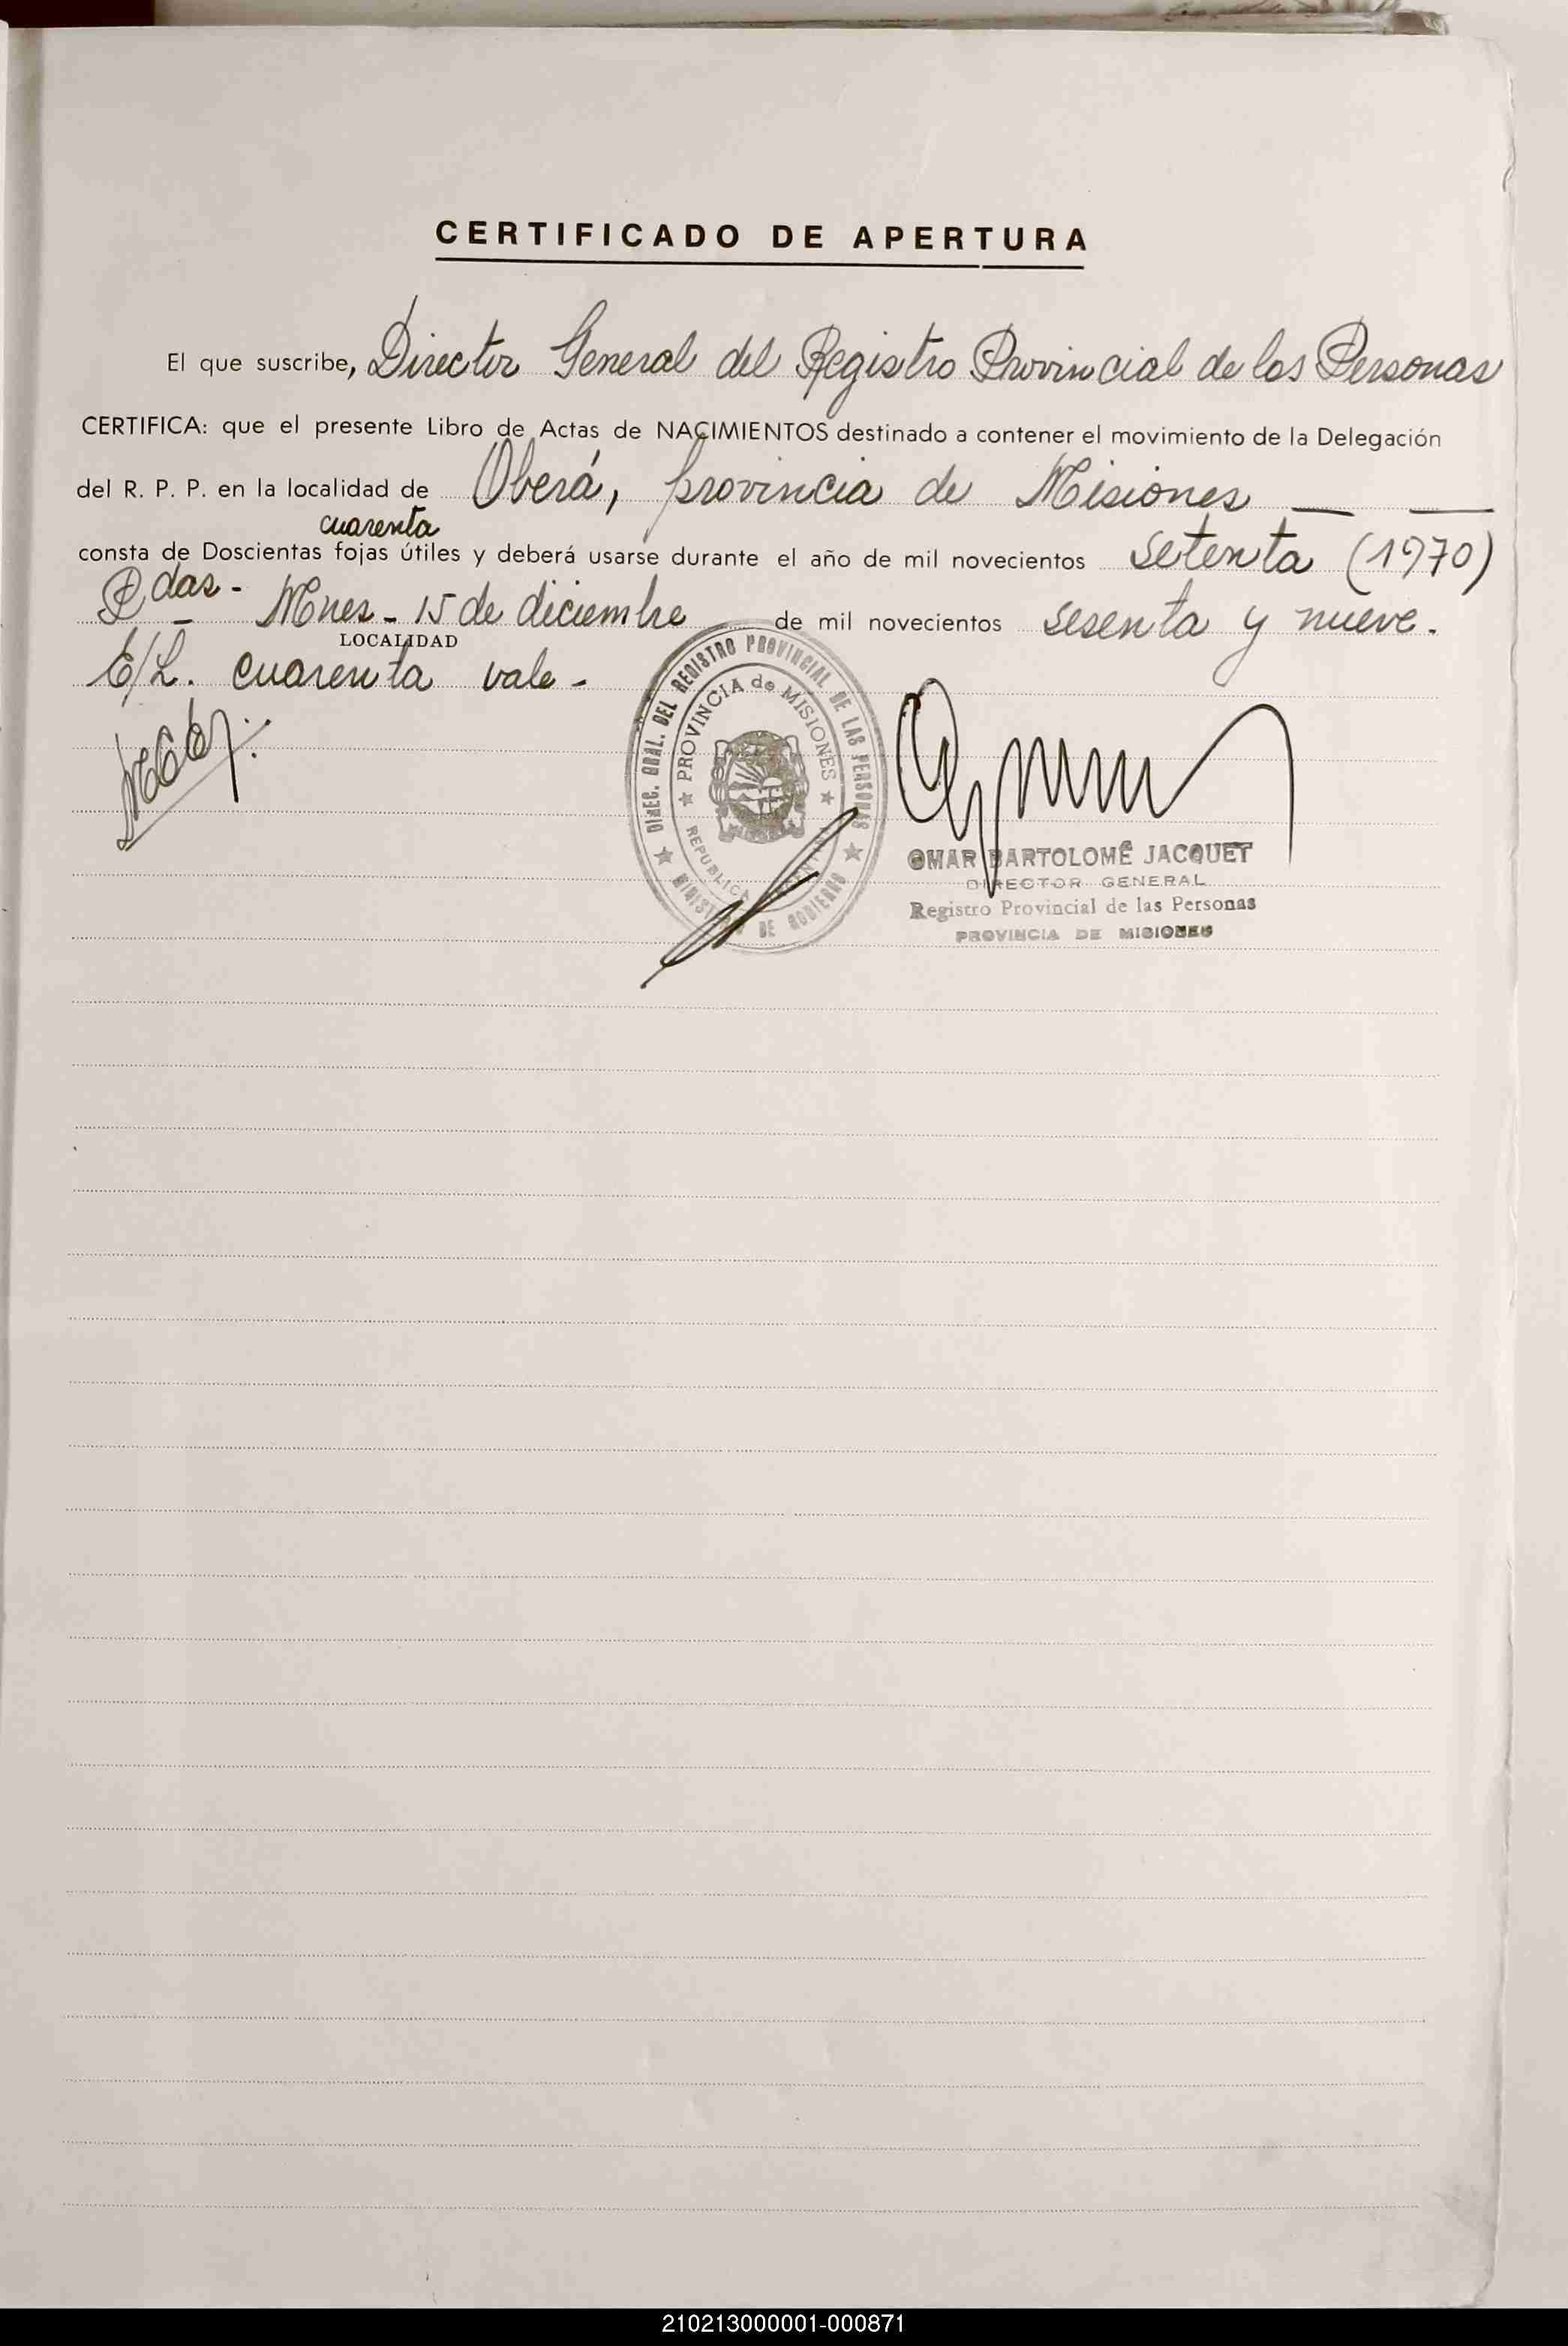 CERTIFICADO DE APERTURA
El que suscribe, Director General del Registro Provincial de las Personas
CERTIFICA: que el presente Libro de Actas de NACIMIENTOS destinado a contener el movimiento de la Delegación
del R. P. P. en la localidad de Oberá, provincia de Misiones
cuarenta
consta de Doscientas fojas útiles y deberá usarse durante el año de mil novecientos setenta (1970)
Pdas - Mnes - 15 de diciembre de mil novecientos sesenta y nueve.
LOCALIDAD
E/L. cuarenta vale -
DIREC. GRAL. DEL REGISTRO PROVINCIAL DE LAS PERSONAS
PROVINCIA de MISIONES
REPUBLICA
MINISTERIO DE GOBIERNO
OMAR BARTOLOMÉ JACQUET
DIRECTOR GENERAL
Registro Provincial de las Personas
PROVINCIA DE MISIONES
210213000001-000871